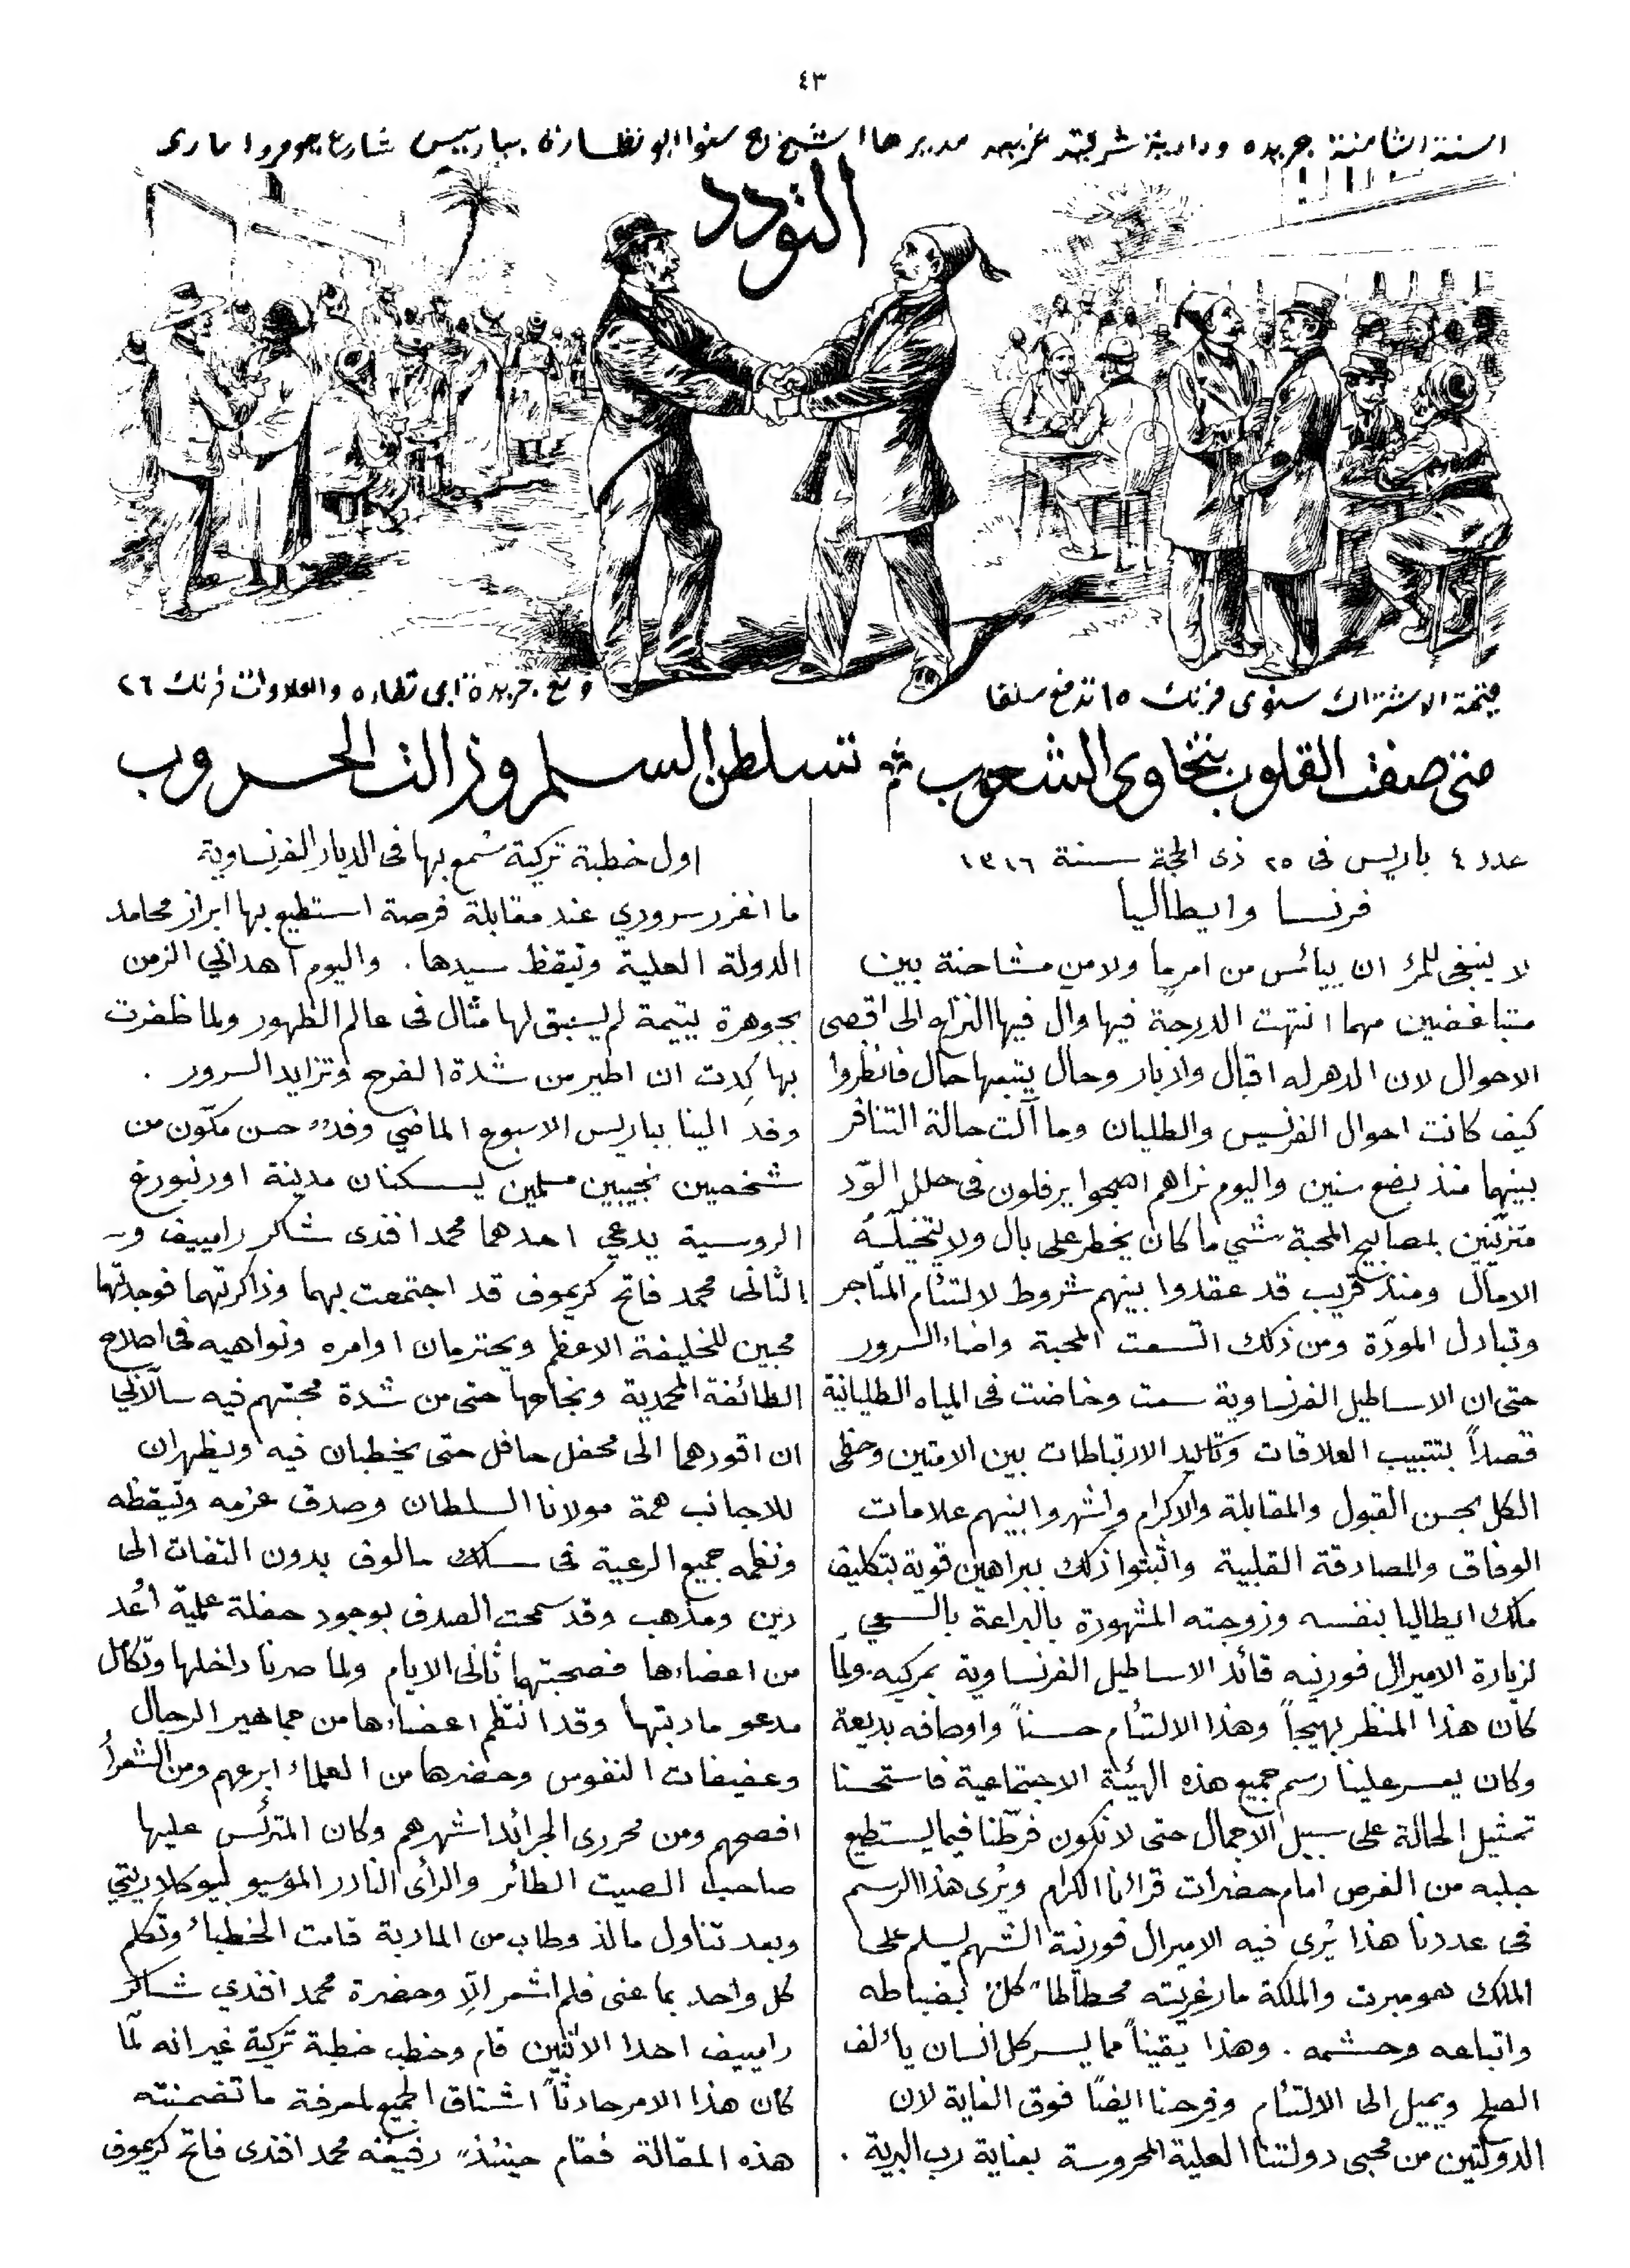 ٤٣
السنة الثامنة جريدة ودادية شرقية غربية مديرها الشيخ ج سنوا ابو نظارة بباريس شارع جوفروا مارى
التودد
قيمة الاشتراك سنوى فرنك ١٥ تدفع سلفا
ومع جريدة ابى نظاره والعلاوات فرنك ٢٦
متى صفت القلوب بتخاوى الشعوب ثم تسلطن السلم وزالت الحروب
عدد ٤ باريس فى ٢٥ ذى الحجة سنة ١٣١٦
فرنسا وايطاليا
لا ينبغى للمرء ان ييائس من امرٍ ما ولا من مشاحنة بين
متباغضين مهما انتهت الدرجة فيها وال فيها النزاع الى اقصى
الاحوال لان الدهر له اقبال وادبار وحال يتبعها حال فانظروا
كيف كانت احوال الفرنسيس والطليان وما آلت حالة التنافر
بينهما منذ بضع سنين واليوم نراهم اصبحوا يرفلون فى حلل الودّ
متزيّنين بمصابيح المحبة شئ ما كان يخطر على بال ولا تتخيلّه
الامال ومنذ قريب قد عقدوا بينهم شروط لالتئام المتاجر
وتبادل المودّة ومن ذلك اتسعت المحبة واضاء السرور
حتى ان الاساطيل الفرنساوية سمت وخاضت فى المياه الطليانية
قصداً بتتبيب العلاقات وتاكيد الارتباطات بين الامتين وحظى
الكل بحسن القبول والمقابلة والاكرام واشهروا بينهم علامات
الوفاق والمصادقة القلبية واثبتوا ذلك ببراهين قوية بتكليف
ملك ايطاليا بنفسه وزوجته المشهورة بالبراعة بالسعي
لزيارة الاميرال فورنيه قائد الاساطيل الفرنساوية بمركبه. ولمّا
كان هذا المنظر بهيجاً وهذا الالتئام حسناً واوصافه بديعة
وكان يعسر علينا رسم جميع هذه الهيئة الاجتماعية فاستحسنا
تمثيل الحالة على سبيل الاجمال حتى لا نكون فرّطنا فيما يستطيع
جلبه من الفرص امام حضرات قرائنا الكرام ويُرى هذا الرسم
فى عددنا هذا يُرى فيه الاميرال فورنية الشهم يسلم على
الملك همومبرت والملكة مارغريته محطا لها كلٌ بضباطه
واتباعه وحشمه . وهذا يقيناً مما يسر كل انسان يائلف
الصلح ويميل الى الالتئام وفرحنا ايضًا فوق الغاية لان
الدولتين من محبى دولتنا العلية المحروسة بعناية رب البرية .
اول خطبة تركية سُمع بها فى الديار الفرنساوية
ما اغزر سروري عند مقابلة فرصة استطيع بها ابراز محامد
الدولة العلية وتيقظ سيدها . واليوم اهدانى الزمن
بجوهرة يتيمة لم يسبق لها مثال فى عالم الظهور ولما ظفرت
بها كدت ان اطير من شدة الفرح وتزايد السرور .
وفد الينا بباريس الاسبوع الماضي وفدٌ حسن مكوّن من
شخصين نجيبين مسلمين يسكنان مدينة اورنبورغ
الروسية يدعي احدهما محمد افندى شاكر رامييف و-
الثانى محمد فاتح كريموف قد اجتمعت بهما وذاكرتهما فوجدتهما
محبين للخليفة الاعظم ويحترمان اوامره ونواهيه فى اصلاح
الطائفة المحمدية ونجاحها حتى من شدة محبتهم فيه سألانى
ان اقودهما الى محفل حافل حتى يخطبان فيه ويظهران
للاجانب همة مولانا السلطان وصدق عزمه وتيقظه
ونظمه جميع الرعية فى سلك مالوف بدون التفات الى
دين ومذهب وقد سمحت الصدف بوجود حفلة علميّة اُعد
من اعضاءها فصحبتهما ثانى الايام ولما صرنا داخلها وتكامل
مدعو مادبتها وقد انتظم اعضاءها من جماهير الرجال
وعفيفات النفوس وحضرها من العلماء ابرعهم ومن الشعراء
افصحهم ومن محررى الجرائد اشهرهم وكان المترئس عليها
صاحب الصيت الطائر والرأى النادر الموسيو ليو كلاريتي
وبعد تناول مالذ وطاب من المادبة قامت الخطباء وتكلم
كل واحد بما عنى فلم اشعر الّا وحضرة محمد افندي شاكر
رامييف احد الاثنين قام وخطب خطبة تركية غير انه لمّا
كان هذا الامر حادثاً اشتاق الجميع لمعرفة ما تضمنته
هذه المقالة فقام حينئذٍ رفيقه محمد افندى فاتح كريموف